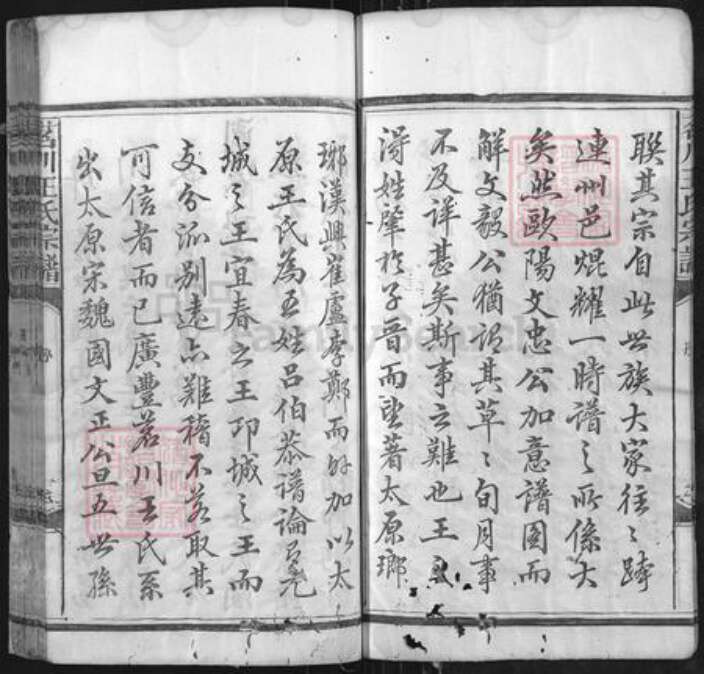 聯其宗自此世族大家往往跨
連州邑焜耀一時譜之所係大
矣然歐陽文忠公加意譜圖而
解文毅公猶謂其草草旬月事
不及詳甚矣斯事之難也王之
得姓肇於子晉而望著太原瑯
瑯漢興崔盧李鄭而外加以太
原王氏為五姓呂伯恭譜論有元
城之王宜春之王邛城之王而
支分派別遠亦難稽不若取其
可信者而已廣豐茗川王氏系
出太原宋魏國文正公旦五世孫
茗川王氏宗譜
FamilySearch